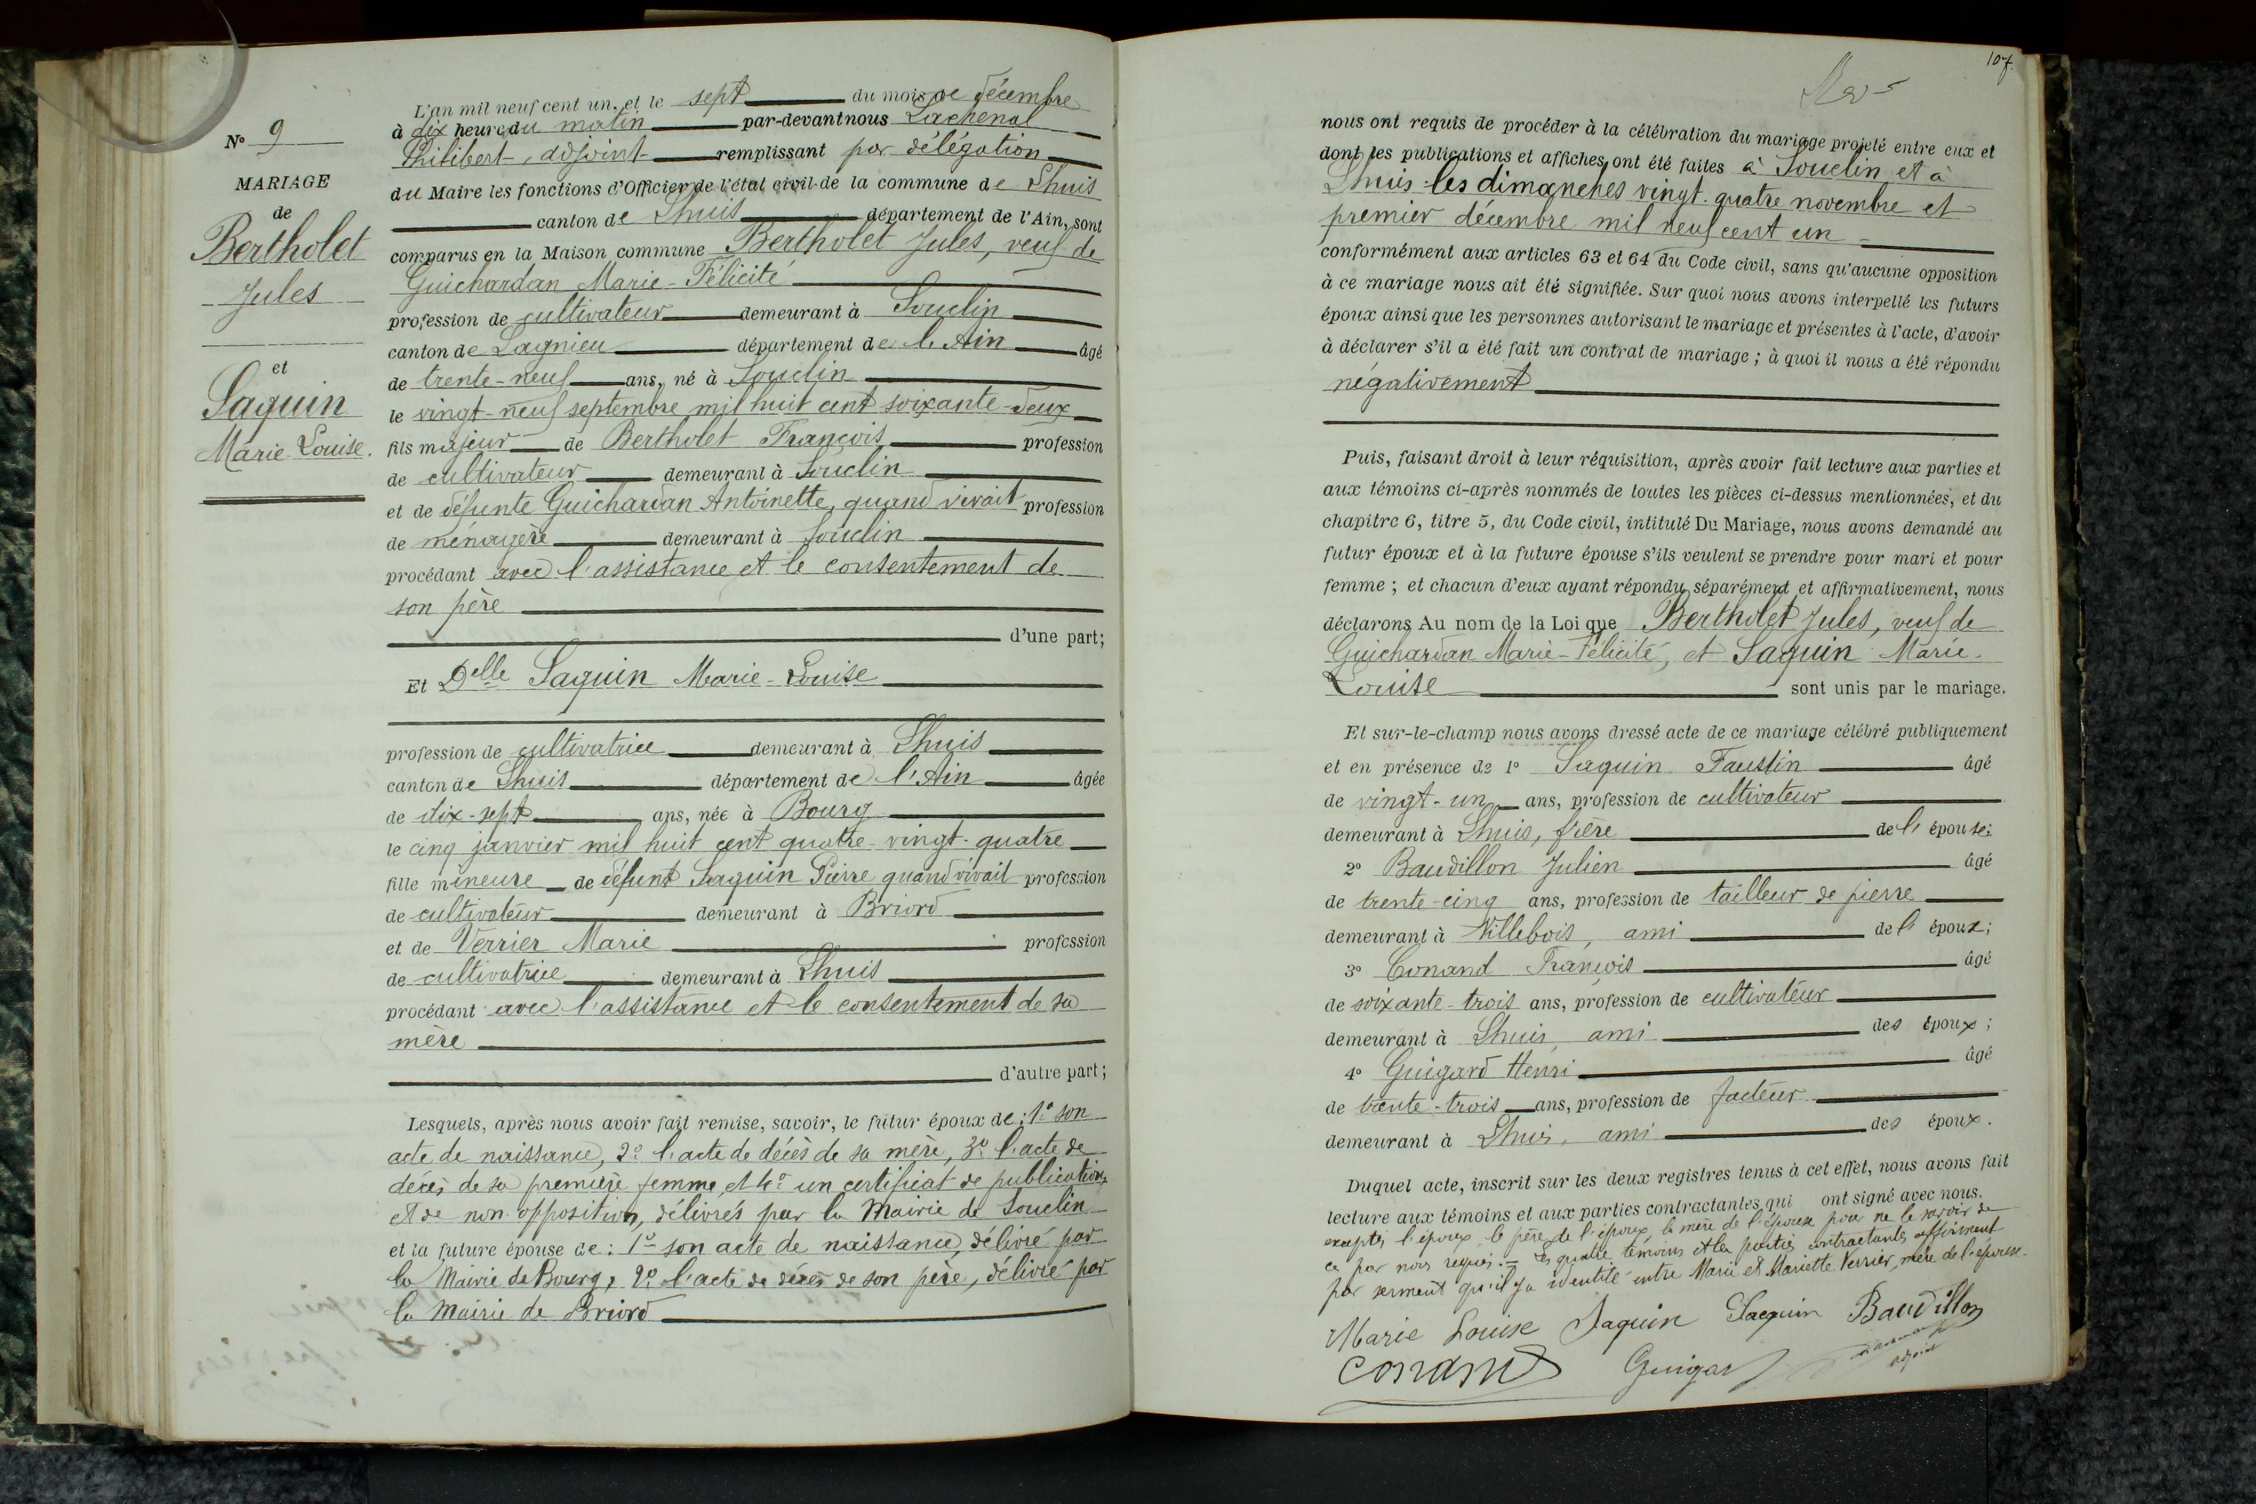 N° 9
MARIAGE
de
Bertholet
Jules
et
Saquin
Marie Louise.
L'an mil neuf cent un, et le sept du mois de décembre
à dix heure du matin par-devant nous Lachenal
Philibert, adjoint remplissant par délégation
du Maire les fonctions d'Officier de l'état civil de la commune de Lhuis
canton de Lhuis département de l'Ain, sont
comparus en la Maison commune Bertholet Jules, veuf de
Guichardan Marie-Félicité
profession de cultivateur demeurant à Souclin
canton de Lagnieu département de l'Ain âgé
de trente-neuf ans, né à Souclin
le vingt-neuf septembre mil huit cent soixante-deux
fils majeur de Bertholet François profession
de cultivateur demeurant à Souclin
et de défunte Guichardan Antoinette, quand vivait profession
de ménagère demeurant à Souclin
procédant avec l'assistance et le consentement de
son père
d'une part;
Et Delle Saquin Marie-Louise
profession de cultivatrice demeurant à Lhuis
canton de Lhuis département de l'Ain âgée
de dix-sept ans, née à Bourg
le cinq janvier mil huit cent quatre-vingt-quatre
fille mineure de défunt Saquin Pierre quand vivait profession
de cultivateur demeurant à Briord
et de Verrier Marie profession
de cultivatrice demeurant à Lhuis
procédant avec l'assistance et le consentement de sa
mère
d'autre part;
Lesquels, après nous avoir fait remise, savoir, le futur époux de: 1° son
acte de naissance, 2° l'acte de décès de sa mère, 3° l'acte de
décès de sa première femme, et 4° un certificat de publication
et de non opposition, délivrés par la Mairie de Souclin
et la future épouse de: 1° son acte de naissance, délivré par
la Mairie de Bourg, 2° l'acte de décès de son père, délivré par
la Mairie de Briord
107.
nous ont requis de procéder à la célébration du mariage projeté entre eux et
dont les publications et affiches ont été faites à Souclin et à
Lhuis les dimanches vingt-quatre novembre et
premier décembre mil neuf cent un
conformément aux articles 63 et 64 du Code civil, sans qu'aucune opposition
à ce mariage nous ait été signifiée. Sur quoi nous avons interpellé les futurs
époux ainsi que les personnes autorisant le mariage et présentes à l'acte, d'avoir
à déclarer s'il a été fait un contrat de mariage; à quoi il nous a été répondu
négativement
Puis, faisant droit à leur réquisition, après avoir fait lecture aux parties et
aux témoins ci-après nommés de toutes les pièces ci-dessus mentionnées, et du
chapitre 6, titre 5, du Code civil, intitulé Du Mariage, nous avons demandé au
futur époux et à la future épouse s'ils veulent se prendre pour mari et pour
femme; et chacun d'eux ayant répondu séparément et affirmativement, nous
déclarons Au nom de la Loi que Bertholet Jules, veuf de
Guichardan Marie-Félicité, et Saquin Marie-
Louise sont unis par le mariage.
Et sur-le-champ nous avons dressé acte de ce mariage célébré publiquement
et en présence de 1° Saquin Faustin âgé
de vingt-un ans, profession de cultivateur
demeurant à Lhuis, frère de l'épouse;
2° Baudillon Julien âgé
de trente-cinq ans, profession de tailleur de pierre
demeurant à Villebois, ami de l'époux;
3° Conand François âgé
de soixante-trois ans, profession de cultivateur
demeurant à Lhuis, ami des époux;
4° Guigard Henri âgé
de trente-trois ans, profession de facteur
demeurant à Lhuis, ami des époux.
Duquel acte, inscrit sur les deux registres tenus à cet effet, nous avons fait
lecture aux témoins et aux parties contractantes qui ont signé avec nous.
exceptés l'époux, le père de l'époux, la mère de l'épouse pour ne le savoir de
ce par nous requis. = Les quatre témoins et les parties contractantes affirment
par serment qu'il y a identité entre Marie et Mariette Verrier, mère de l'épouse.
Marie Louise Saquin Saquin Baudillon
Conand Guigard
adjoint